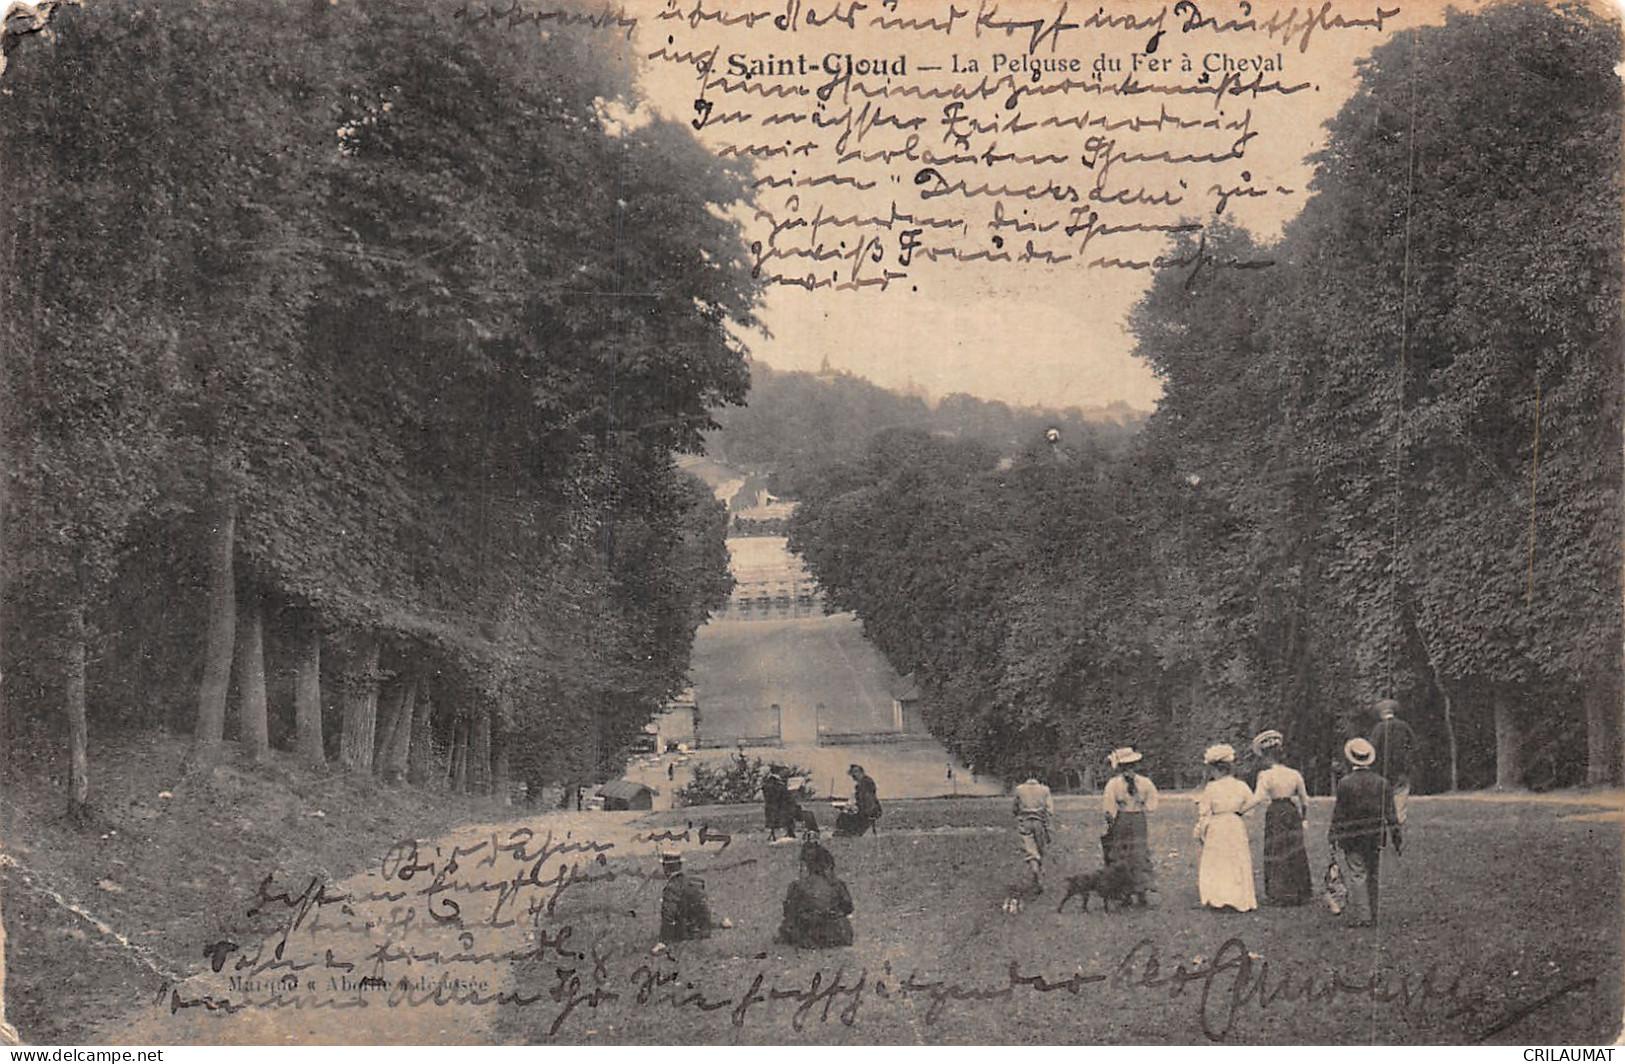 erkrankt, über Hals und Kopf nach Deutschland
in
9. Saint-Cloud — La Pelouse du Fer à Cheval
seine Heimat zurück mußte.
In nächster Zeit werde ich
mir erlauben Ihnen
eine "Drucksache" zu-
zusenden, die Ihnen
gewiß Freude machen
wird.
Bis dahin mit
besten Empfehlungen
für Ihren
Sohne freundl.
Marque « Abeille » déposée
Ihr Sie hochschätzender
CRILAUMAT